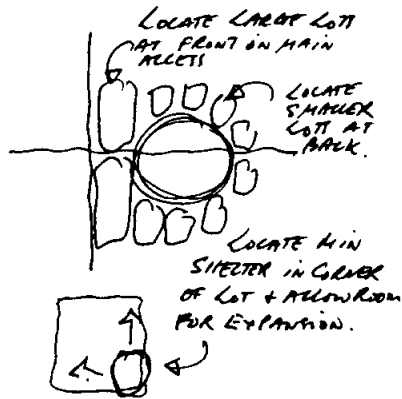 LOCATE LARGE LOTS
AT FRONT ON MAIN
ACCESS
LOCATE
SMALLER
LOTS AT
BACK.
LOCATE MIN
SHELTER IN CORNER
OF LOT + ALLOW ROOM
FOR EXPANSION.